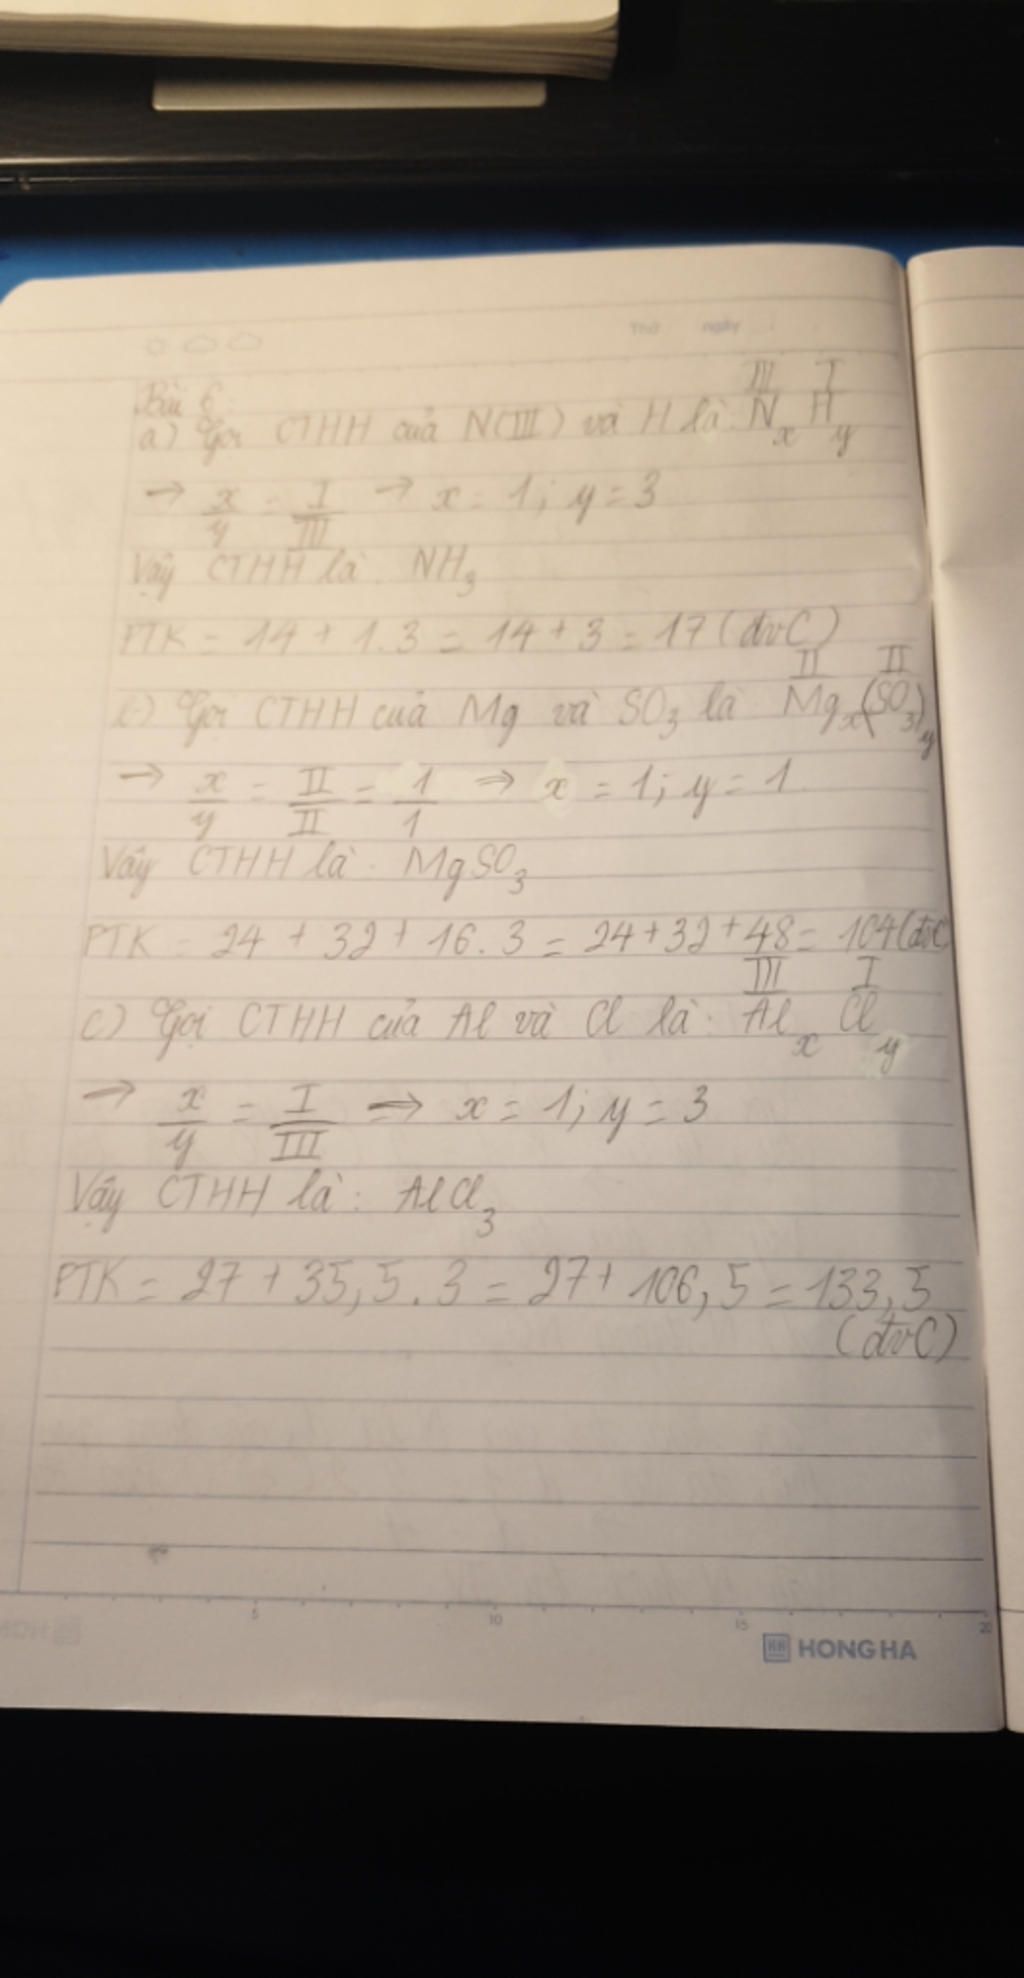 Thứ ngày
Bài 6:
III I
a) Gọi CTHH của N(III) và H là: NxHy
→ x/y = I/III → x = 1; y = 3
Vậy CTHH là: NH3
PTK = 14 + 1.3 = 14 + 3 = 17 (đvC)
II II
b) Gọi CTHH của Mg và SO3 là: Mgx(SO3)y
→ x/y = II/II = 1/1 ⇒ x = 1; y = 1
Vậy CTHH là: MgSO3
PTK = 24 + 32 + 16.3 = 24+32+48 = 104(đvC)
III I
c) Gọi CTHH của Al và Cl là: AlxCly
→ x/y = I/III ⇒ x = 1; y = 3
Vậy CTHH là: AlCl3
PTK = 27 + 35,5.3 = 27+ 106,5 = 133,5
(đvC)
5 10 15 20
HONG HA